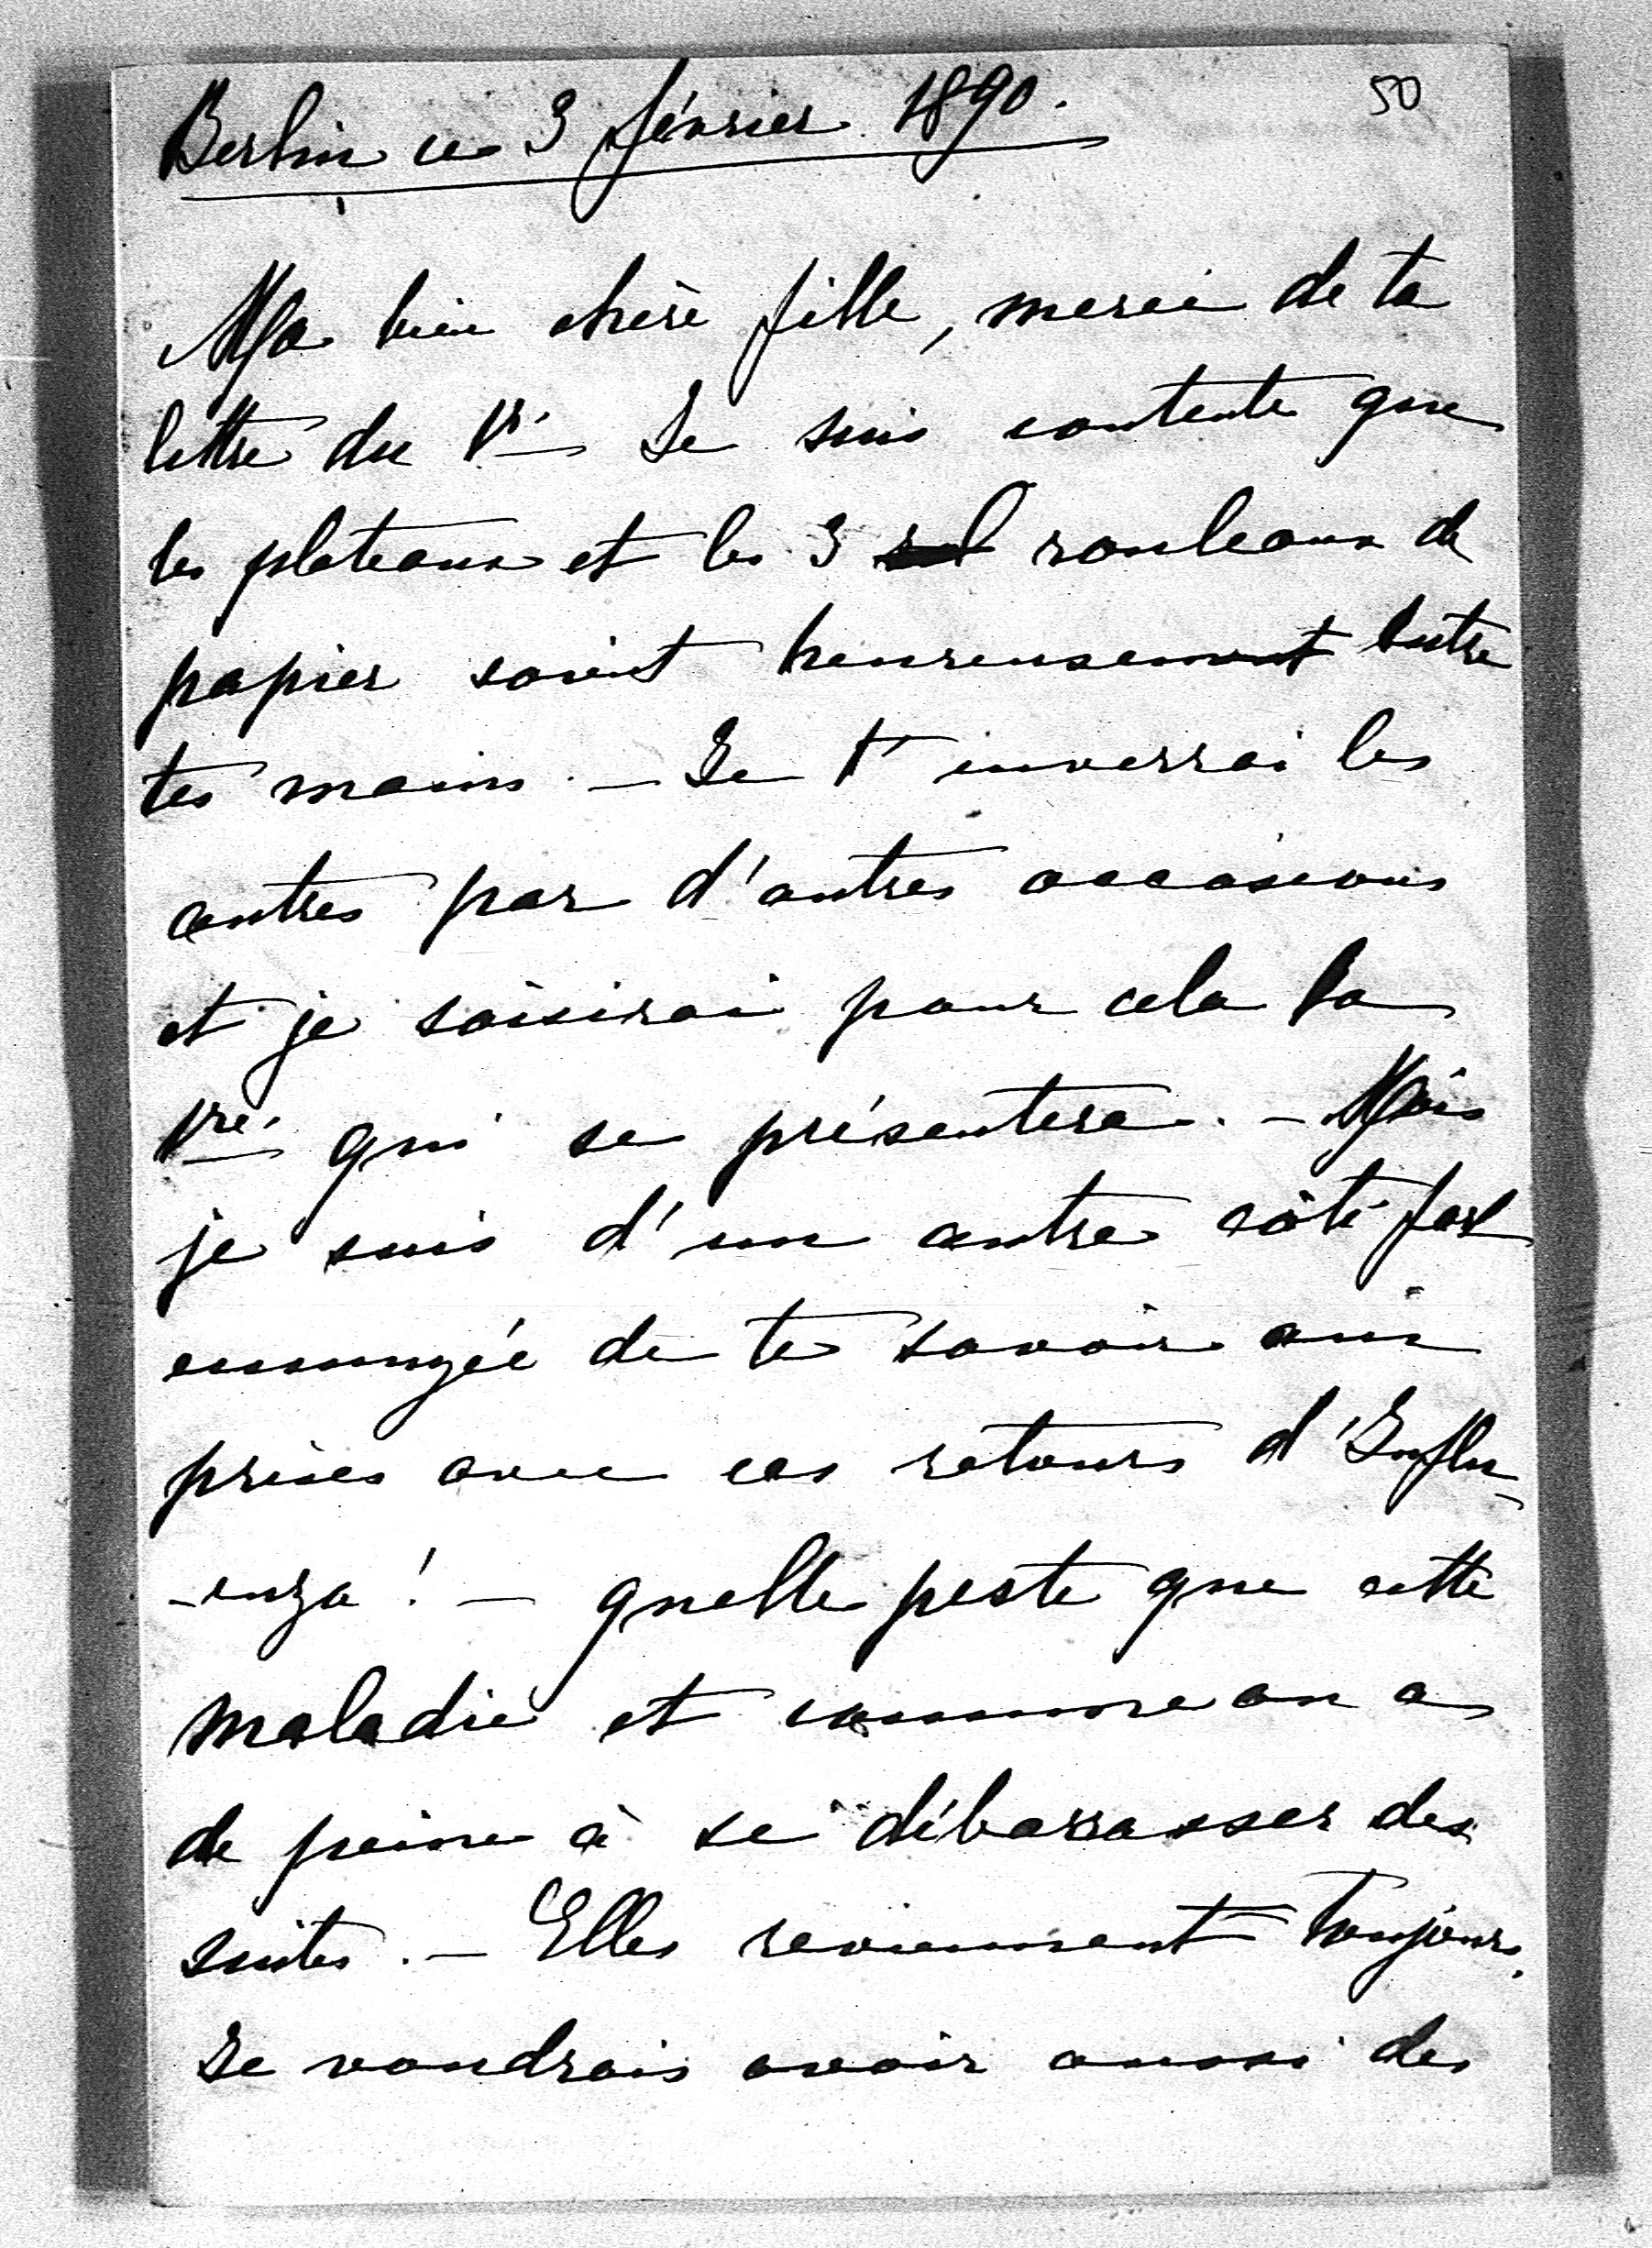 50
Berlin ce 3 février 1890.
Ma bien chère fille, merci de ta
lettre du 1er Je suis contente que
les plateaux et les 3 rouleaux de
papier soient heureusement entre
tes mains. – Je t'enverrai les
autres par d'autres occasions
et je saisirai pour cela la
1re qui se présentera. – Mais
je suis d'un autre côté fort
ennuyée de te savoir aux
prises avec ces retours d'Influ-
-enza! – quelle peste que cette
maladie et comme on a
de peine à se débarrasser des
suites. – Elles reviennent toujours.
Je voudrais avoir aussi des